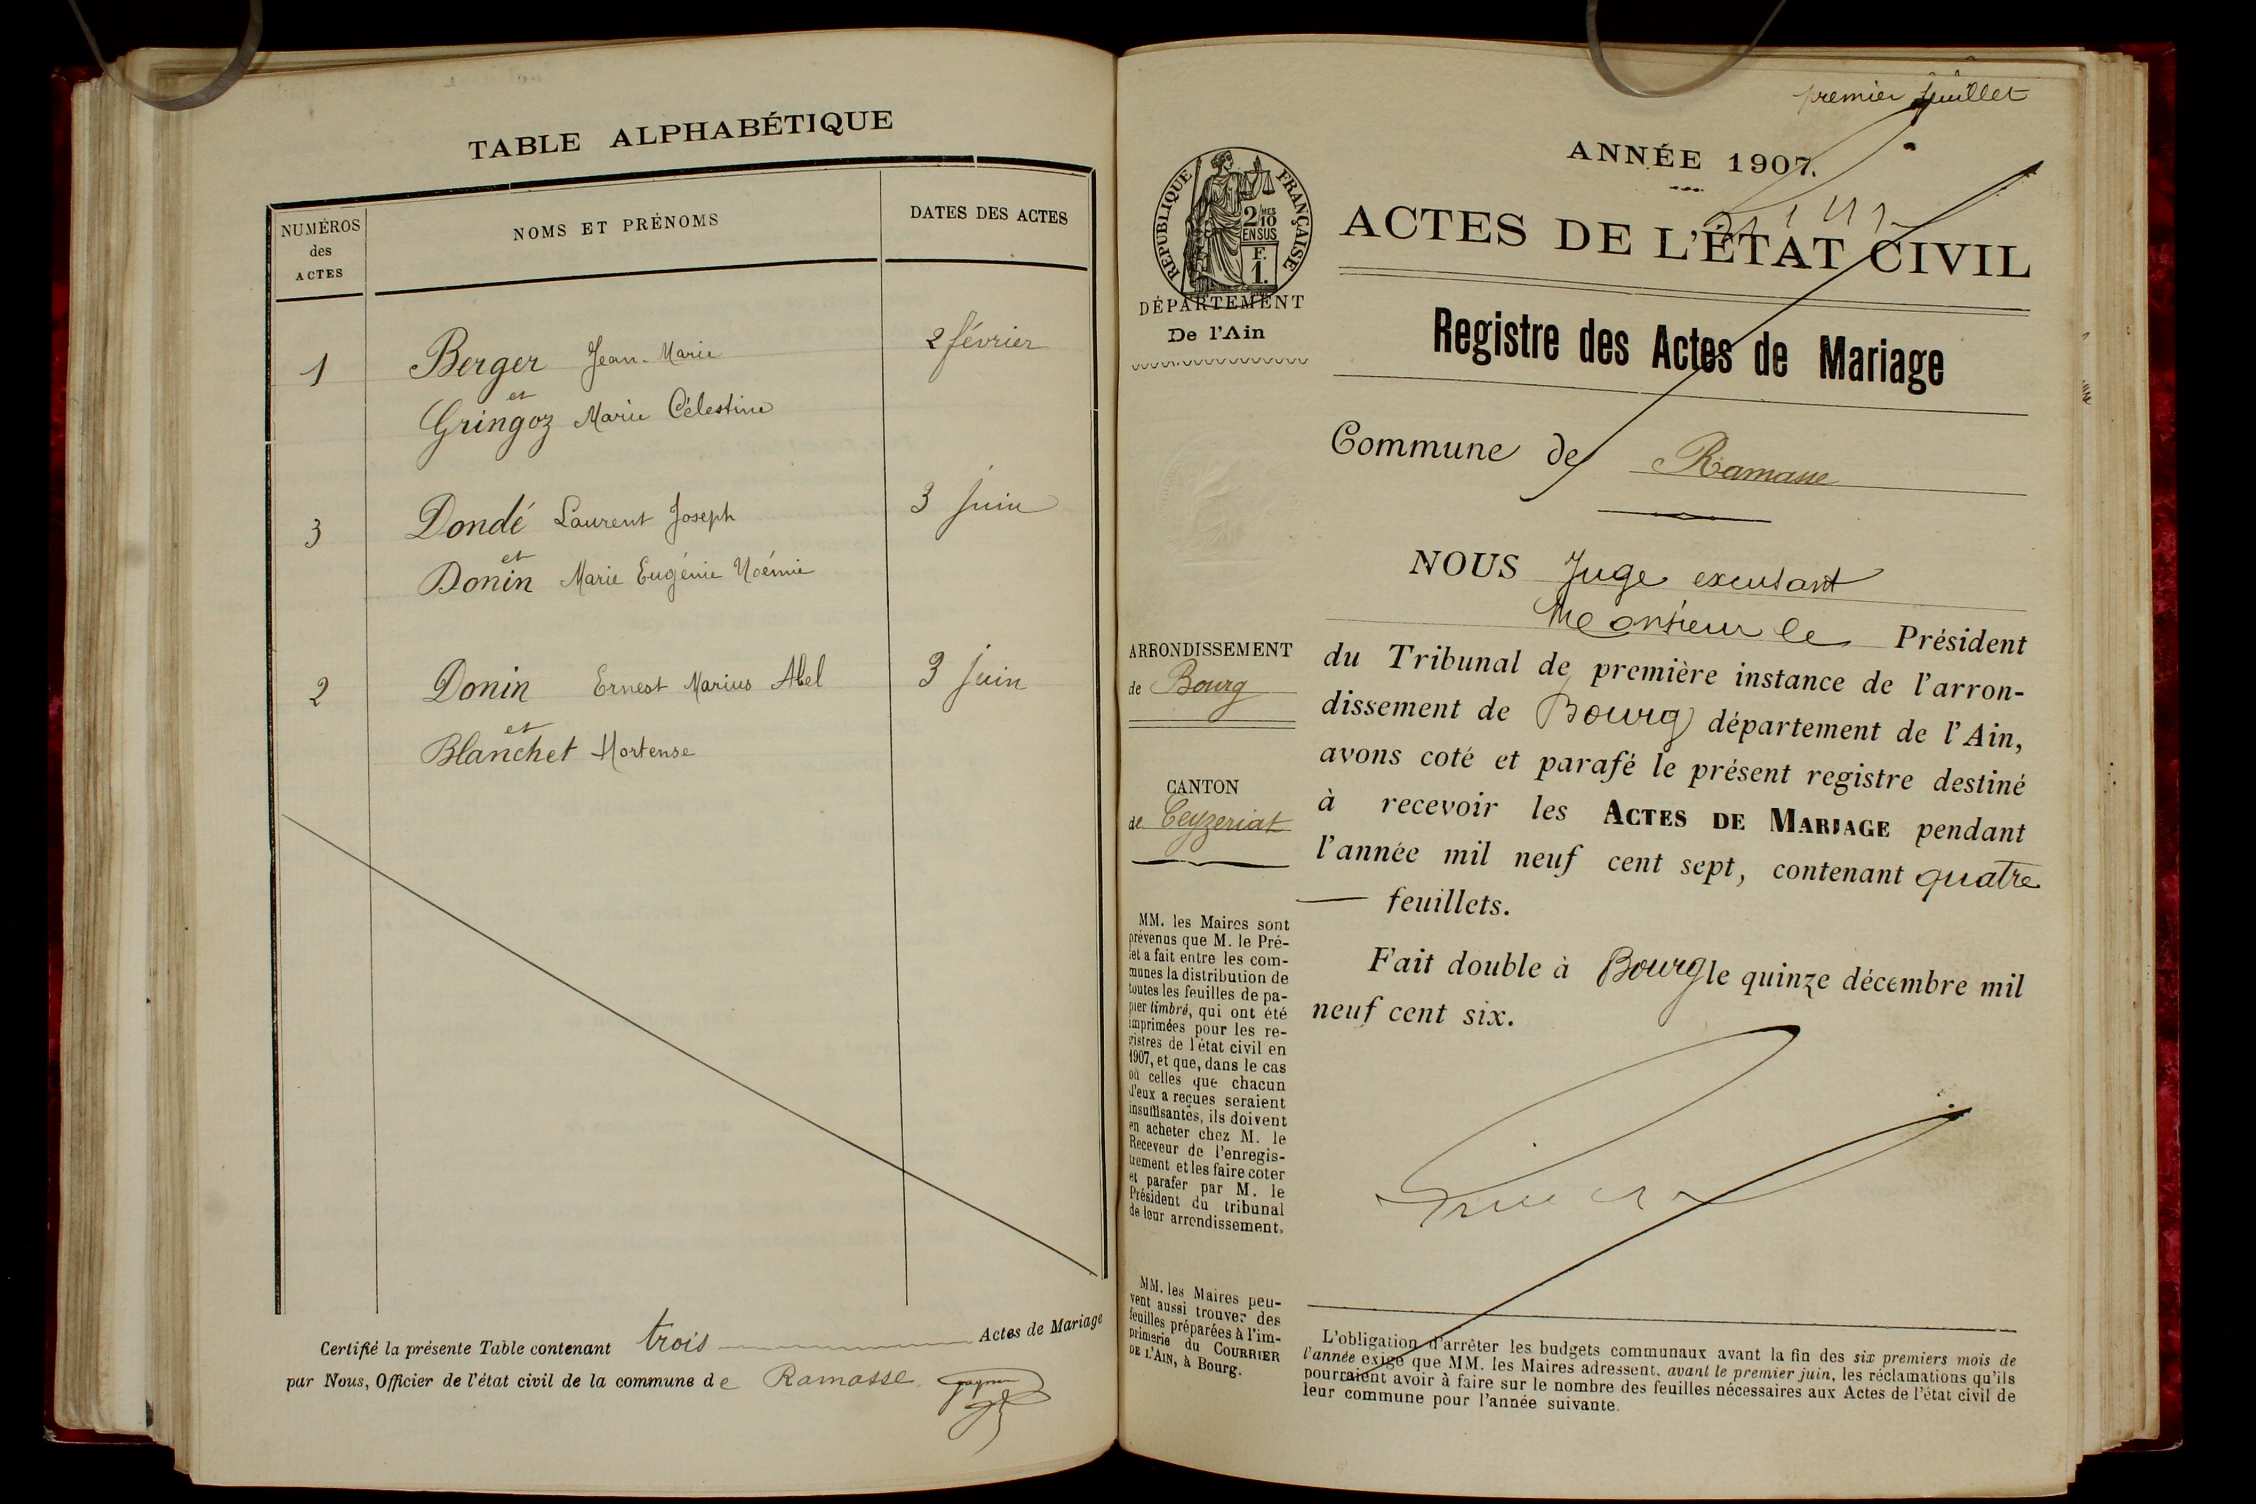 TABLE ALPHABÉTIQUE
NUMÉROS
des
ACTES
NOMS ET PRÉNOMS
DATES DES ACTES
1
Berger Jean-Marie
2 février
et
Gringoz Marie Célestine
3
Dondé Laurent Joseph
3 juin
et
Donin Marie Eugénie Noémie
2
Donin Ernest Marius Abel
3 juin
et
Blanchet Hortense
Certifié la présente Table contenant trois Actes de Mariage
par Nous, Officier de l'état civil de la commune de Ramasse
premier feuillet
ANNÉE 1907.
RÉPUBLIQUE FRANÇAISE
2/10 MES
EN SUS
F.
1.
DÉPARTEMENT
De l'Ain
ACTES DE L'ÉTAT CIVIL
Registre des Actes de Mariage
Commune de Ramasse
ARRONDISSEMENT
de Bourg
CANTON
de Ceyzeriat
MM. les Maires sont
prévenus que M. le Pré-
fet a fait entre les com-
munes la distribution de
toutes les feuilles de pa-
pier timbré, qui ont été
imprimées pour les re-
gistres de l'état civil en
1907, et que, dans le cas
où celles que chacun
d'eux a reçues seraient
insuffisantes, ils doivent
en acheter chez M. le
Receveur de l'enregis-
trement et les faire coter
et parafer par M. le
Président du tribunal
de leur arrondissement.
MM. les Maires peu-
vent aussi trouver des
feuilles préparées à l'im-
primerie du COURRIER
DE L'AIN, à Bourg.
NOUS Juge excusant
Monsieur le Président
du Tribunal de première instance de l'arron-
dissement de Bourg département de l'Ain,
avons coté et parafé le présent registre destiné
à recevoir les ACTES DE MARIAGE pendant
l'année mil neuf cent sept, contenant quatre
feuillets.
Fait double à Bourg le quinze décembre mil
neuf cent six.
L'obligation d'arrêter les budgets communaux avant la fin des six premiers mois de
l'année exige que MM. les Maires adressent, avant le premier juin, les réclamations qu'ils
pourraient avoir à faire sur le nombre des feuilles nécessaires aux Actes de l'état civil de
leur commune pour l'année suivante.